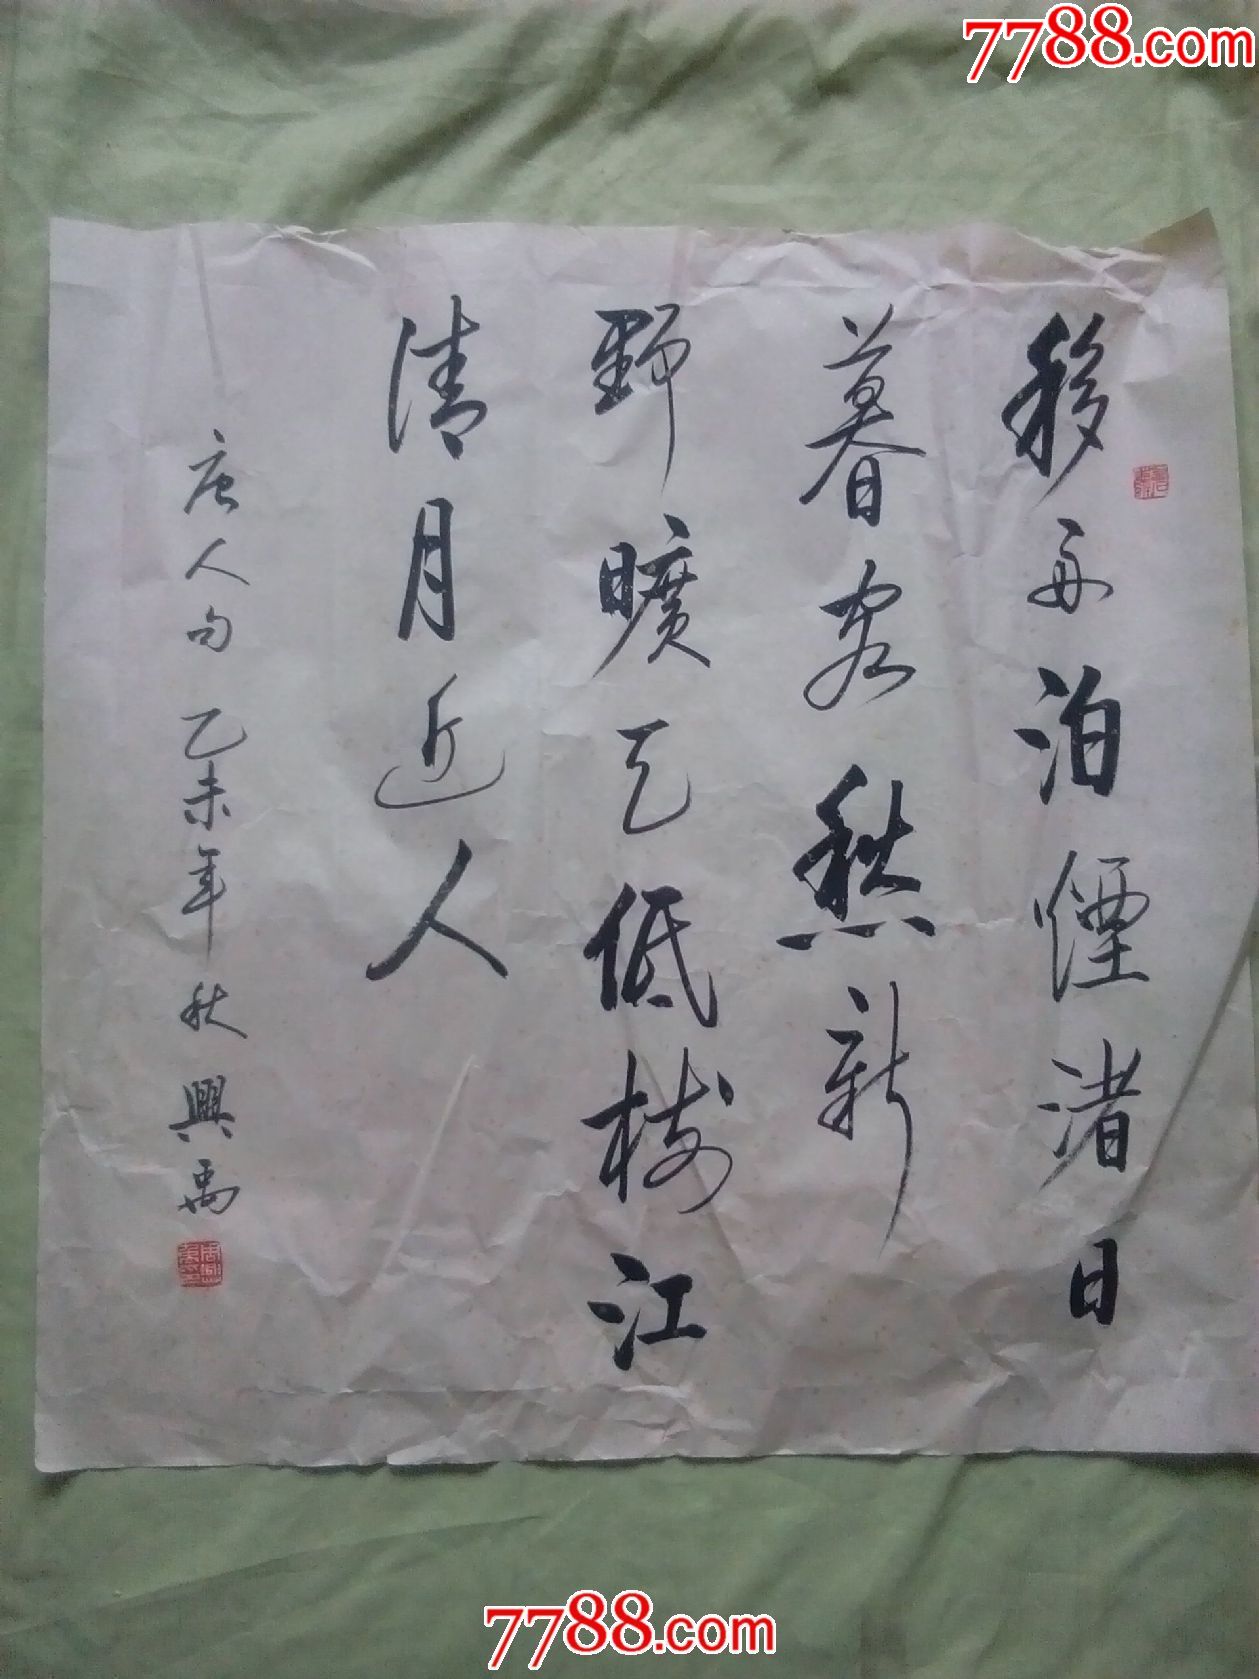 7788.com
移舟泊煙渚日
暮客愁新
野曠天低樹江
清月近人
唐人句 乙未年秋 興禹
7788.com